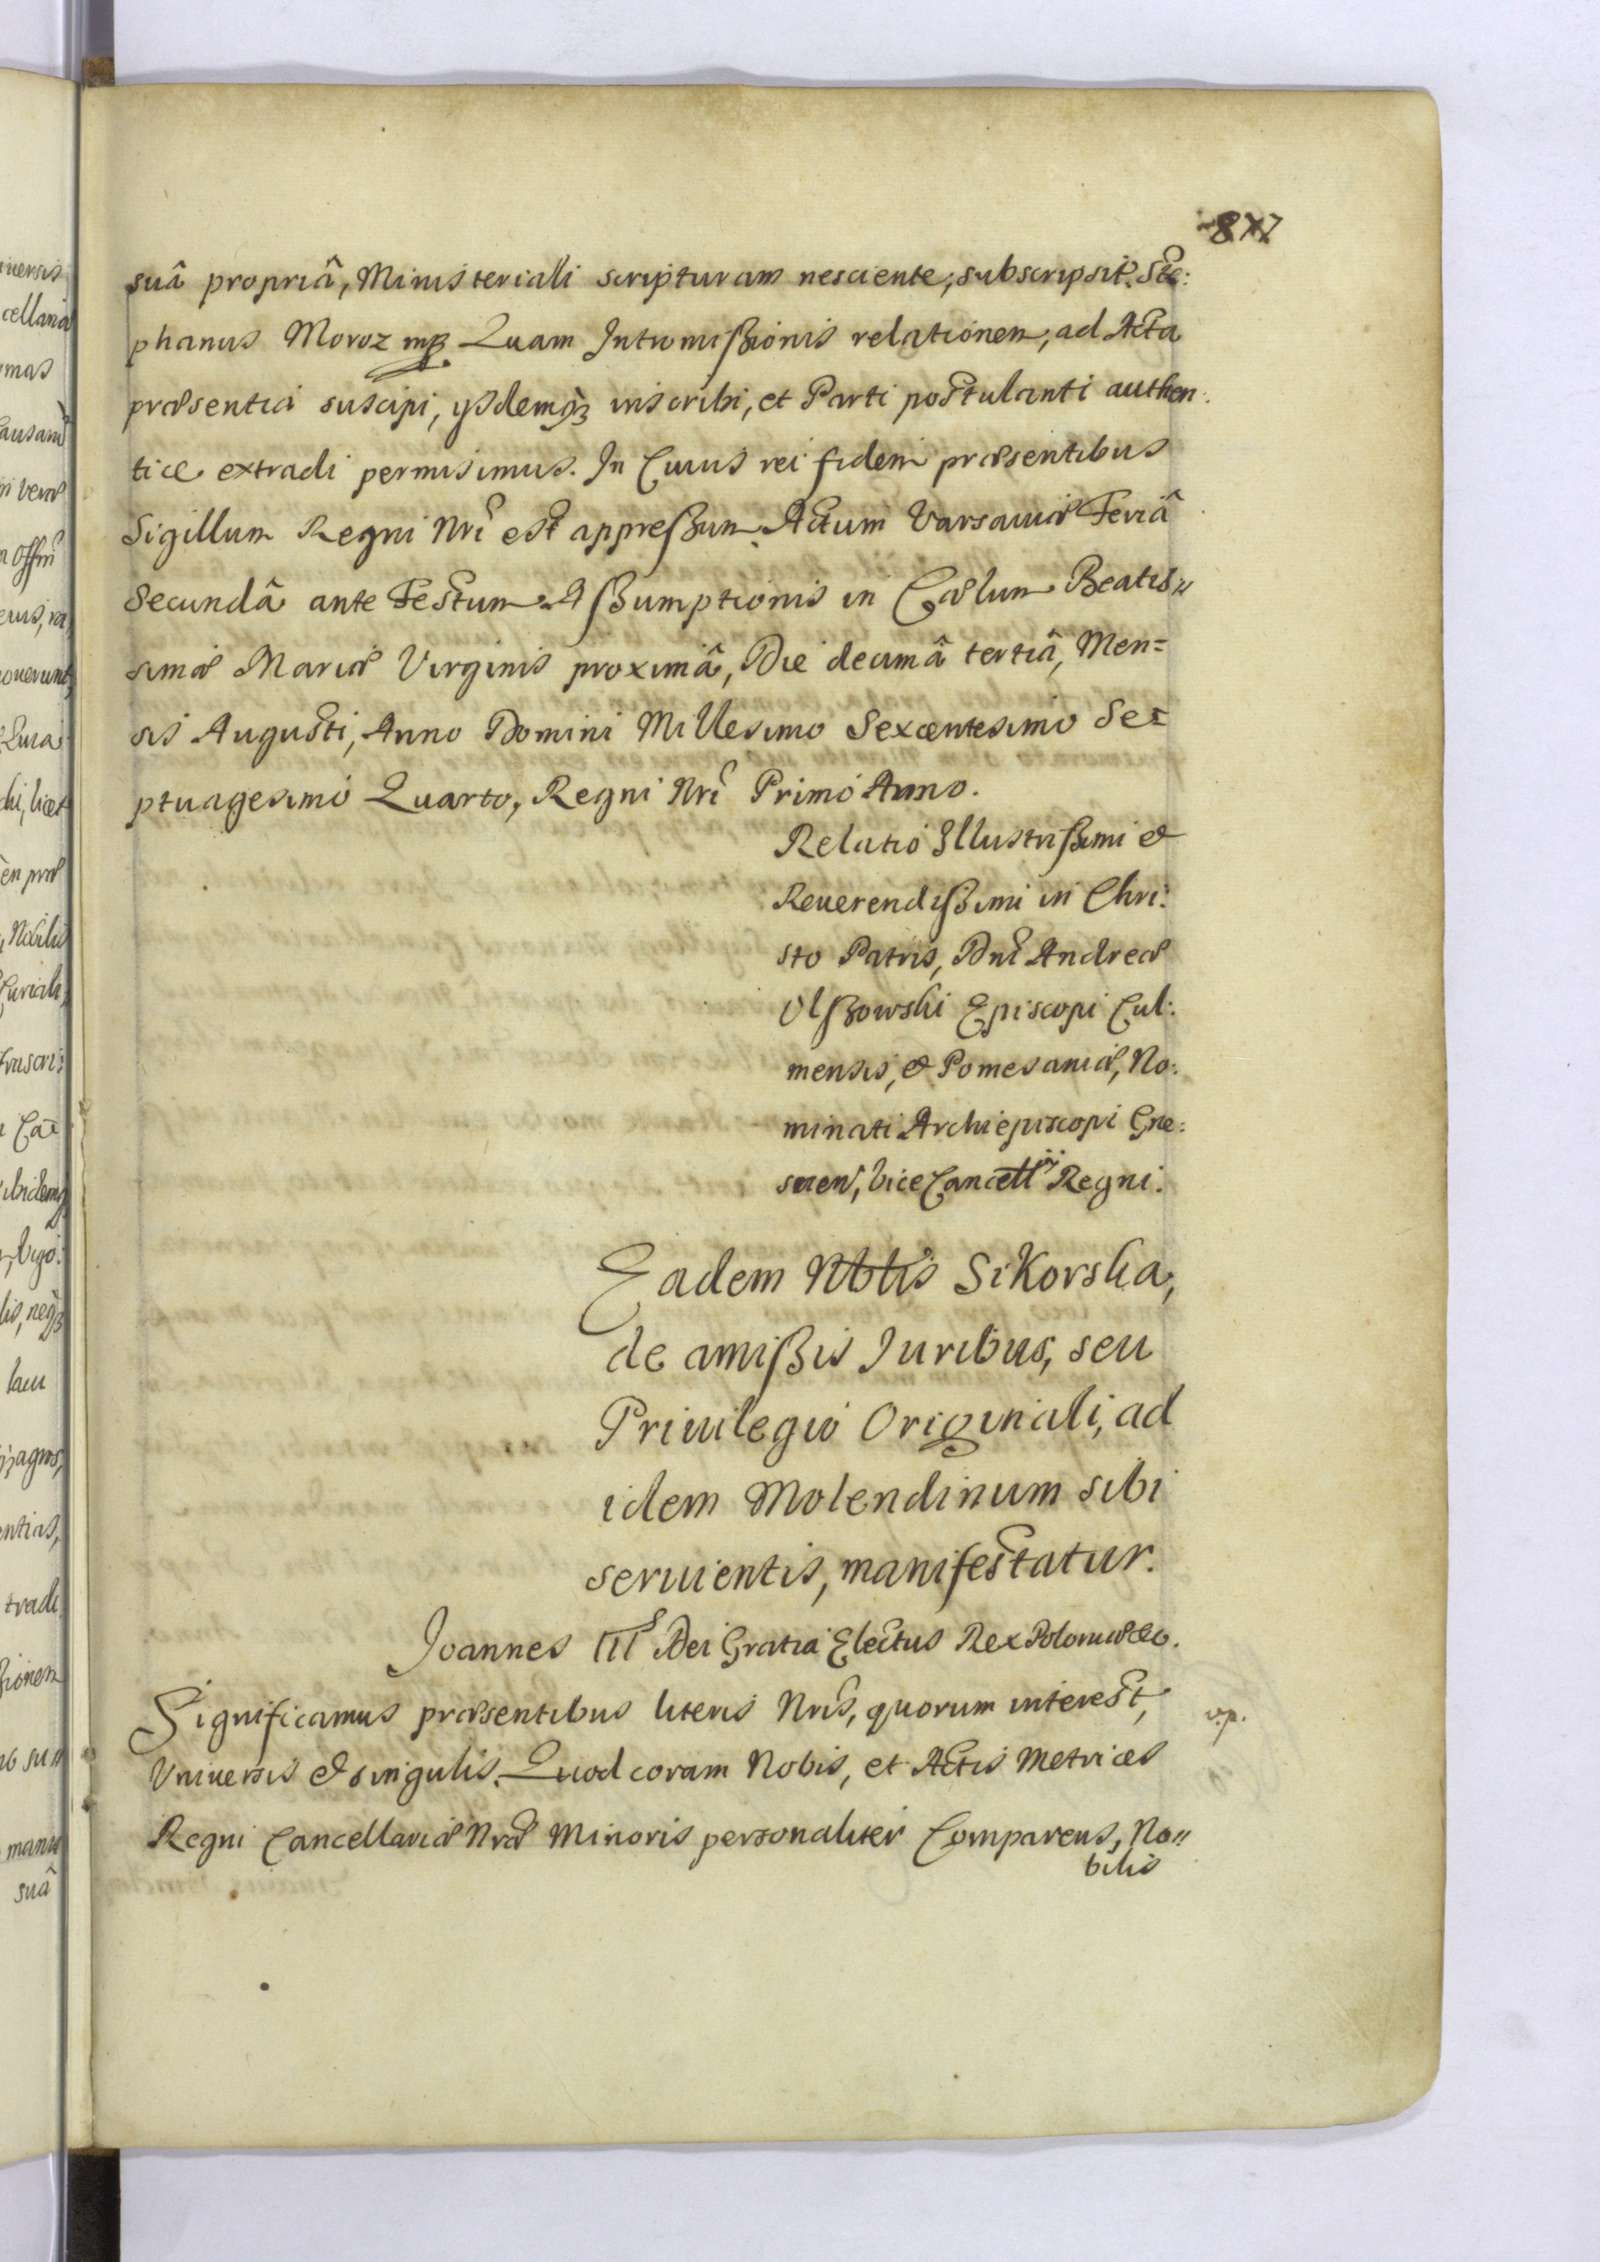 877
suâ propriâ, Ministeriali scripturam nesciente, subscripsit. Ste:
phanus Moroz mp Quam Intromißionis relationem, ad Acta
præsentia suscipi, ysdemq́ʒ inscribi, et Parti postulanti authen:
tice extradi permisimus. In Cuius rei fidem præsentibus
Sigillum Regni Nri est appreßum. Actum Varsaviæ Feriâ
Secundâ ante Festum Aßumptionis in Cælum Beatis〃
simæ Mariæ Virginis proximâ, Die decimâ tertiâ, Men=
sis Augusti, Anno Domini Millesimo Sexcentesimo Se=
ptuagesimo Quarto, Regni Nri Primo Anno.
Relatio Illustrißimi et
Reverendißimi in Chri:
sto Patris, Dni Andreæ
Olßowski Episcopi Cul:
mensis, et Pomesaniæ, No:
minati Archiepiscopi Gne:
snen, vice Cancellrii Regni.
Eadem Nbtis Sikorska,
de amißis Juribus, seu
Privilegio Originali, ad
idem Molendinum sibi
servientis, manifestatur.
Joannes III Dei Gratia Electus Rex Poloniæ etc.
Significamus præsentibus literis Nris, quorum interest,
Universis et singulis. Quod coram Nobis, et Actis Metrices
Regni Cancellariæ Nræ Minoris personaliter Comparens, No〃
bilis
v.p.